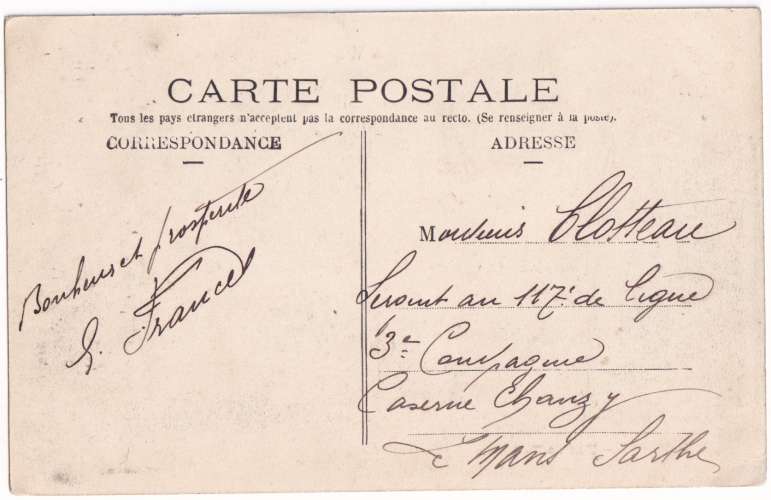 CARTE POSTALE
Tous les pays etrangers n'acceptent pas la correspondance au recto. (Se renseigner à la poste).
CORRESPONDANCE
Bonheur et prosperité
E. France
ADRESSE
Monsieur Clotteau
Sergent au 117e de ligne
3e Compagnie
Caserne Chanzy
Le Mans Sarthe